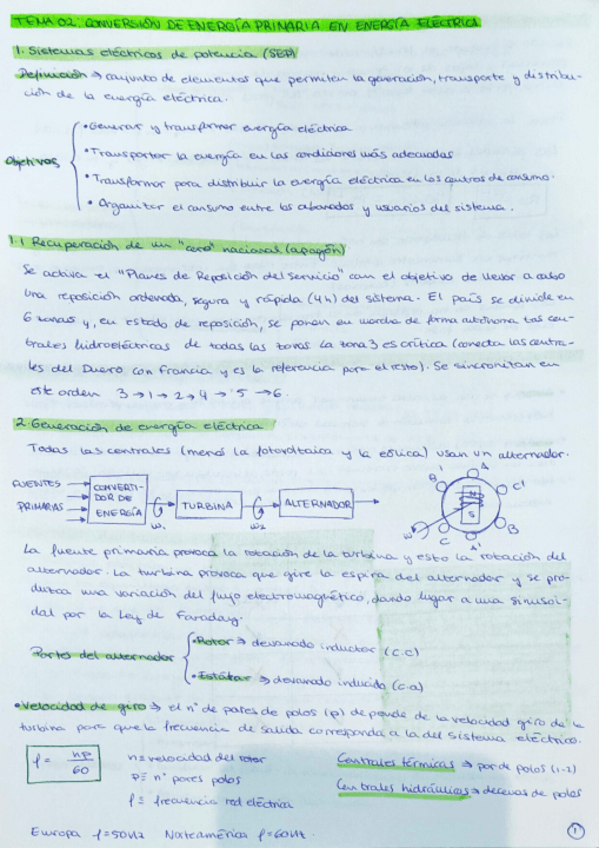 TEMA 02: CONVERSIÓN DE ENERGÍA PRIMARIA EN ENERGÍA ELÉCTRICA
1. Sistemas eléctricos de potencia (SEP)
Definición → conjunto de elementos que permiten la generación, transporte y distribu-
ción de la energía eléctrica.
Objetivos
• Generar y transformar energía eléctrica
• Transportar la energía en las condiciones más adecuadas
• Transformar para distribuir la energía eléctrica en los centros de consumo.
• Organizar el consumo entre los abonados y usuarios del sistema.
1.1 Recuperación de un "cero" nacional (apagón)
Se activa el "Planes de Reposición del Servicio" con el objetivo de llevar a cabo
una reposición ordenada, segura y rápida (4h) del sistema. El país se divide en
6 zonas y, en estado de reposición, se ponen en marcha de forma autónoma las cen-
trales hidroeléctricas de todas las zonas la zona 3 es crítica (conecta las centra-
les del Duero con Francia y es la referencia para el resto). Se sincronizan en
este orden 3 → 1 → 2 → 4 → 5 → 6.
2. Generación de energía eléctrica
Todas las centrales (menos la fotovoltaica y la eólica) usan un alternador.
FUENTES
PRIMARIAS
CONVERTI-
DOR DE
ENERGÍA
ω₁
TURBINA
ω₂
ALTERNADOR
A
B'
C'
N
S
ω
C
B
A'
La fuente primaria provoca la rotación de la turbina y esto la rotación del
alternador. La turbina provoca que gire la espira del alternador y se pro-
duzca una variación del flujo electromagnético, dando lugar a una sinusoi-
dal por la Ley de Faraday.
Partes del alternador
• Rotor → devanado inductor (c.c)
• Estátor → devanado inducido (c.a)
• Velocidad de giro → el n° de pares de polos (p) depende de la velocidad giro de la
turbina para que la frecuencia de salida corresponda a la del sistema eléctrico.
f = np / 60
n ≡ velocidad del rotor
p ≡ n° pares polos
f ≡ frecuencia red eléctrica
Centrales térmicas → par de polos (1-2)
Centrales hidráulicas → decenas de polos
Europa f=50Hz Norteamérica f=60Hz.
1